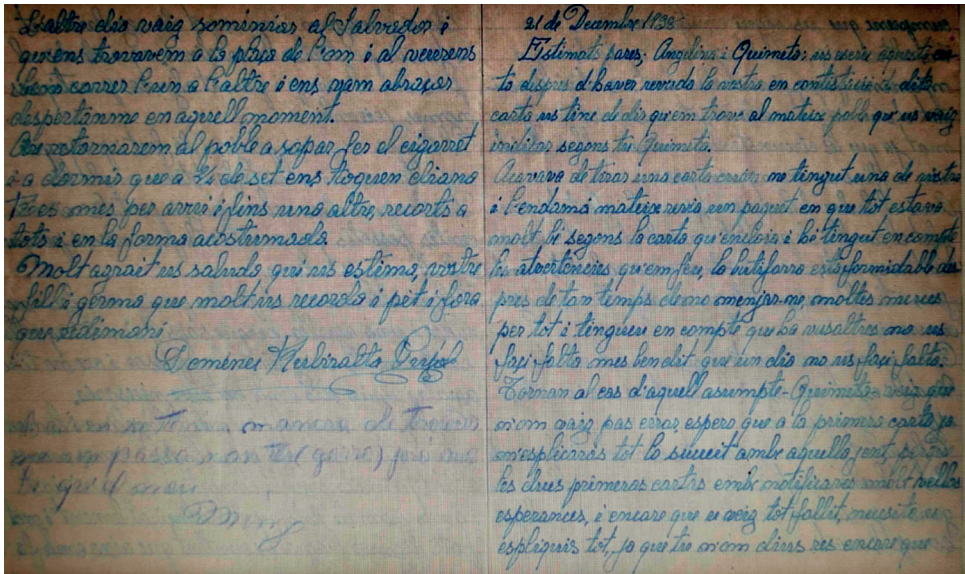 L'altre dia vaig sominiar al Salvador i
que ens trovavem a la plaça de l'om i al veurens
vaem correr l'un a l'altre i ens vam abraçar
despertanme en aquell moment.
Ara tornarem al poble a sopar fer el cigarret
i a dormir que a ¾ de set ens toquen diana
Res mes per avui i fins una altre, recorts a
tots i en la forma acostumada.
Molt agrait us saluda qui us estima, vostre
fill i germa que molt us recorda i pet i fora
que
Domènec
manera de
passa (gaire)
21 de Decembre 1938
Estimats pares, Angelina i Quimeta: us escric aquesta car
ta despres d'haver revuda la vostra en contestacio a dita
carta us tinc de dir qu'em trovo al mateix poble que us vaig
indicar segons tu Quimeta.
Acavava de tirar una carta cuan ne tingut una de vostra
i l'endamá mateix revia un paquet en que tot estava
molt bé segons la carta qu'encloia i hé tingut en compte
les atvertencies, qu'em feu, la butifarra está formidable des
pres de tan temps de no menjar-ne, moltes mercès
per tot i tingueu en compte que ha vusaltres no us
faci falta mes ben dit, que un dia no us faci falta.
Tornan al cas d'aquell asumpte-Quimeta- veig que
n'om vaig pas errar espero que a la primera carta ja
m'esplicaras tot lo sucuit amb aquella gent,
les dues primeras cartas emb notificaves molt vellas
esperances, i encare que veig tot fallit, necesito
espliquis tot, ja que tu n'om dius res encare que